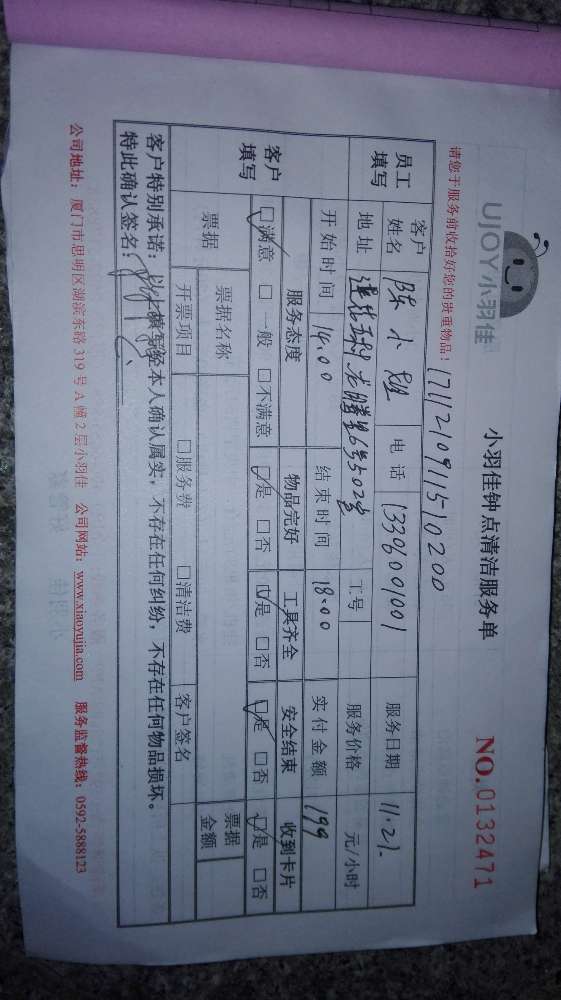 UJOY小羽佳
小羽佳钟点清洁服务单
NO.0132471
请您于服务前收拾好您的贵重物品!
171121091151020D
员工填写
客户姓名 陈小姐 电话 13396001001 服务日期 11.21.
地址 龙腾 6号502室 工号 服务价格 元/小时
开始时间 14:00 结束时间 18:00 实付金额 199
客户填写
服务态度 物品完好 工具齐全 安全结束 收到卡片
☑满意 □一般 □不满意 ☑是 □否 ☑是 □否 ☑是 □否 ☑是 □否
票据 票据名称 票据金额
开票项目 □服务费 □清洁费 客户签名
客户特别承诺:以上填写经本人确认属实,不存在任何纠纷,不存在任何物品损坏。
特此确认签名:
公司地址:厦门市思明区湖滨东路319号A幢2层小羽佳 公司网站:www.xiaoyujia.com 服务监督热线:0592-5888123